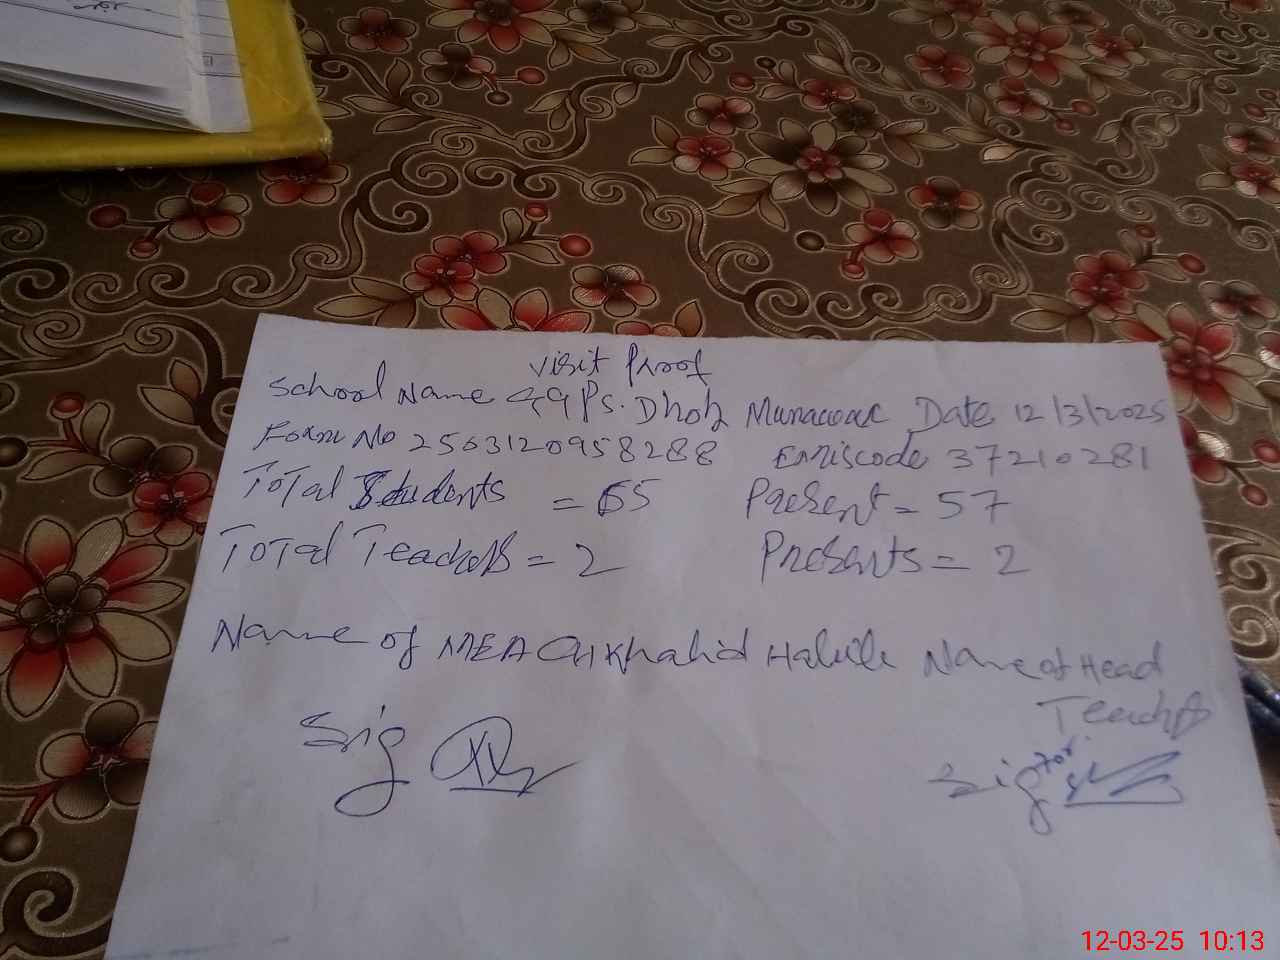 Visit Proof
School Name GGPS. Dhok Munawar Date 12/3/2025
Form No 2503120958288 Emiscode 37210281
Total Students = 65 Present = 57
Total Teachers = 2 Presents = 2
Name of MEA Ch Khalid Habib Name of Head
Teacher
Sig Sig for
12-03-25 10:13